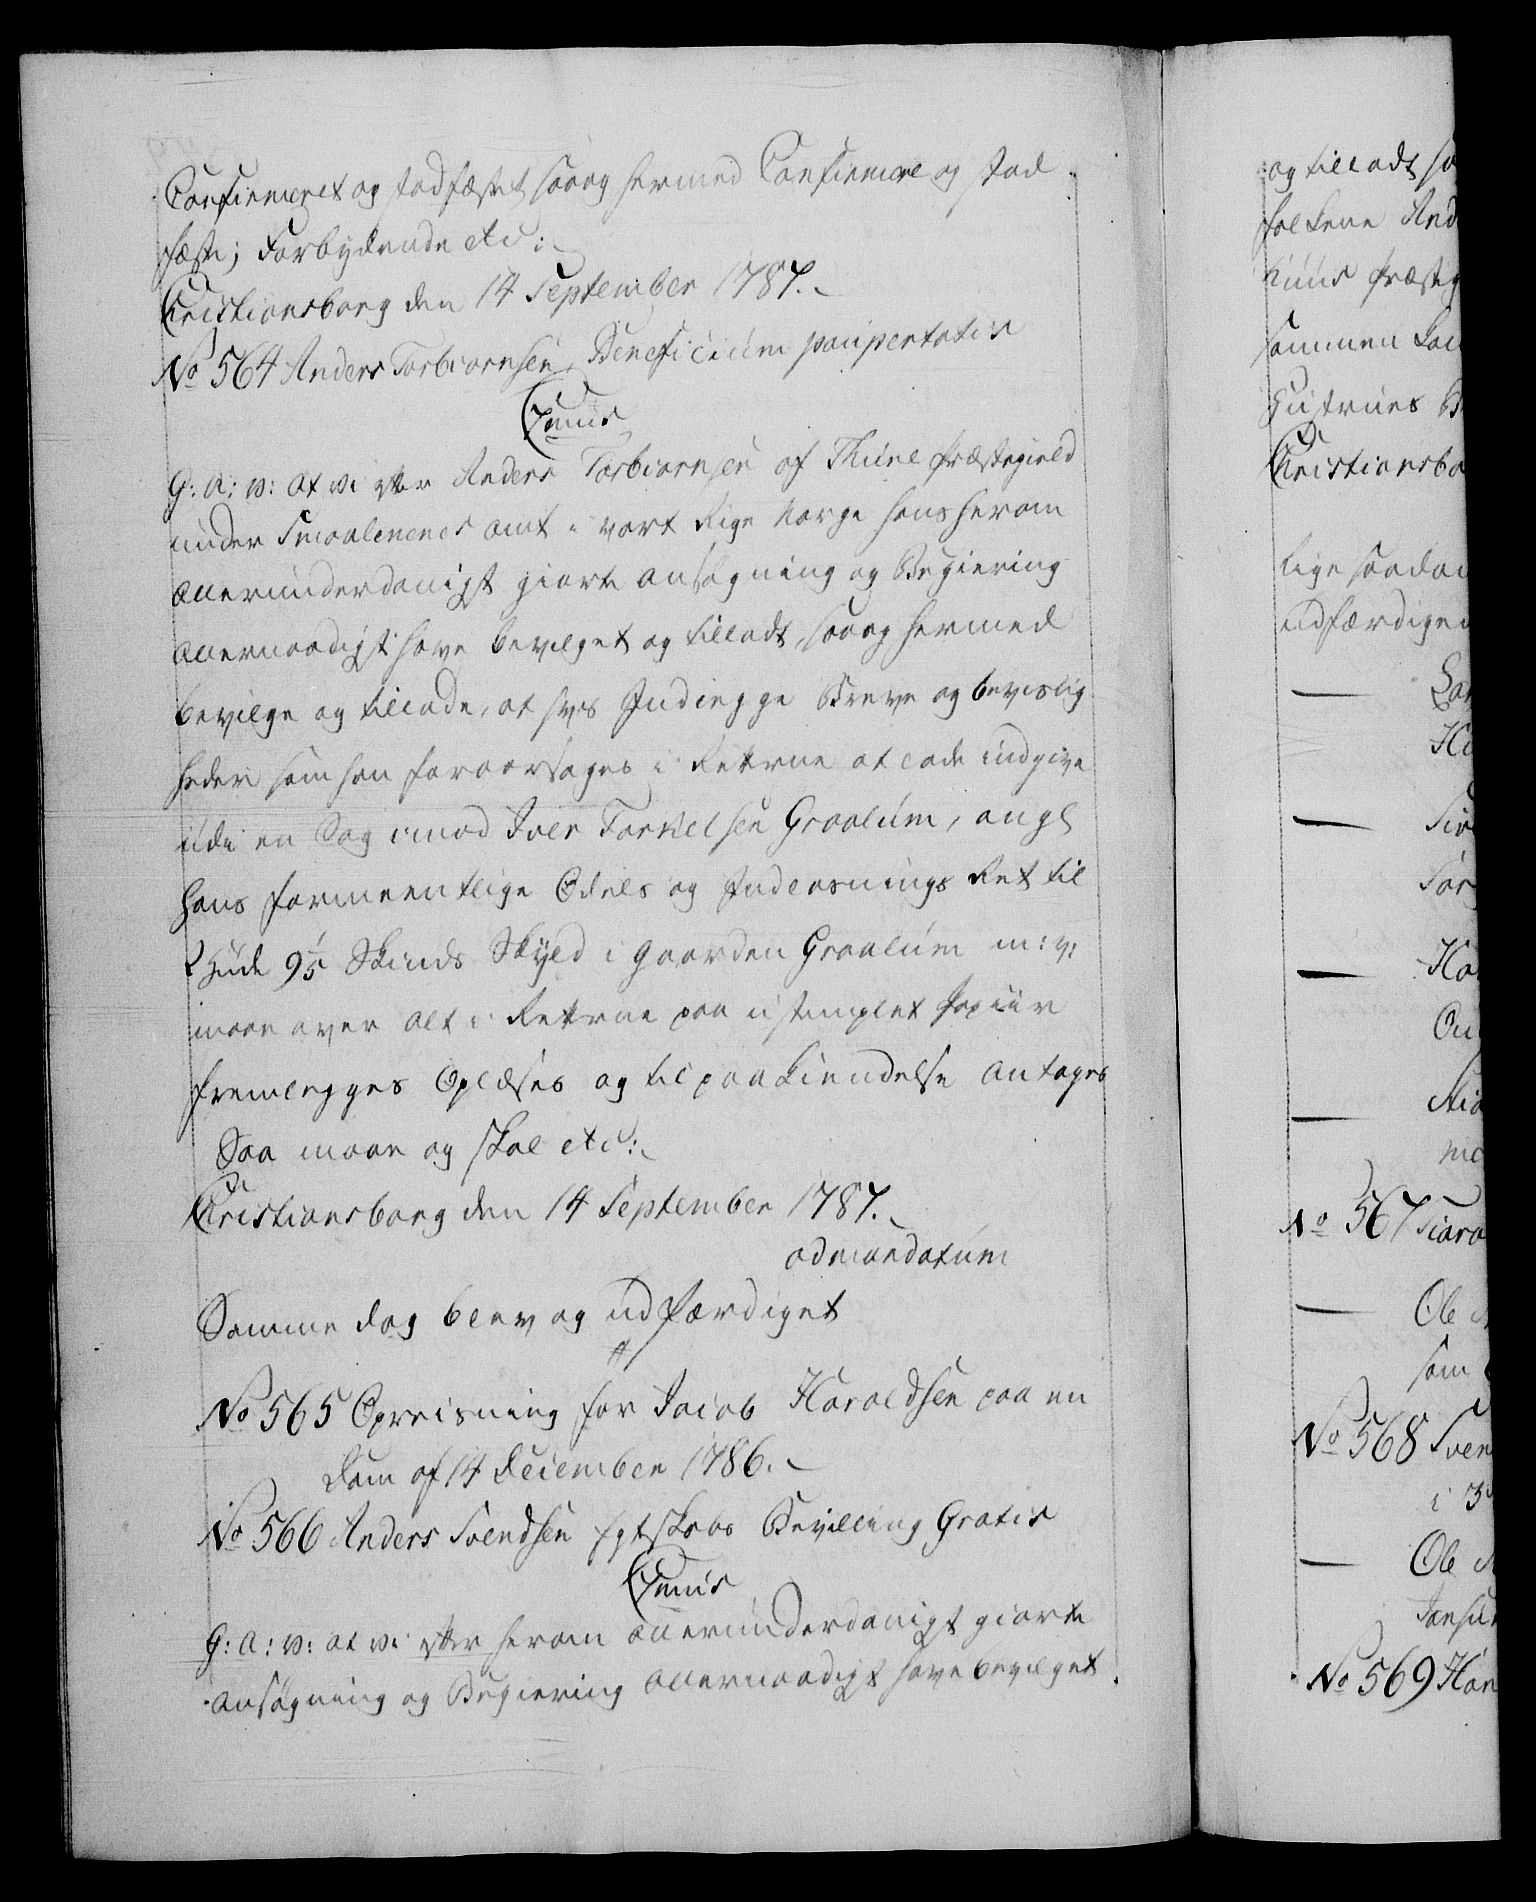 Confirmeret og stadfæstet, saa og hermed Confirmere og stad
fæste; Forbydende etc:
Christiansborg den 14 September 1787.
No 564 Anders Torbiørnsen, Beneficium paupertatis
C 7mus
G: A: V: at vi efter Anders Torbiørnsen af Thune Præstegield
under Smaalenenes Amt i vort Rige Norge hans herom
allerunderdanigst giorte Ansøgning og Begiering
allernaadigst have bevilget og tilladt, saa og hermed
bevilge og tillade, at hvis Indlegge Breve og bevislig
heder som han foraarsages i Retterne at lade indgive
udi en Sag imod Iver Torkelsen Graalum, angl
hans formeentlige Odels og Indløsnings Ret til
1 Hude 9 1/5 Skinds Skyld i Gaarden Graalum m: v:
maae over alt i Retterne paa ustemplet Papiir
fremlegges Oplæses og til paakiendelse antages
Saa maae og skal etc:
Christiansborg den 14 September 1787.
ad mandatum
Samme dag blev og udfærdiget
No 565 Opreisning for Jacob Haraldsen paa en
Dom af 14 December 1786.
No 566 Anders Svendsen Egtskabs Bevilling Gratis
C 7mus
G: A: V: at vi efter herom allerunderdanigst giorte
Ansøgning og Begiering allernaadigst have bevilget
og tilladt sa
folkene And
huus Præsteg
sammen
Hustrues
Christiansbo
lige saada
udfærdige
No 567
Ole
som
No 568 Sven
i 3
Ole
No 569